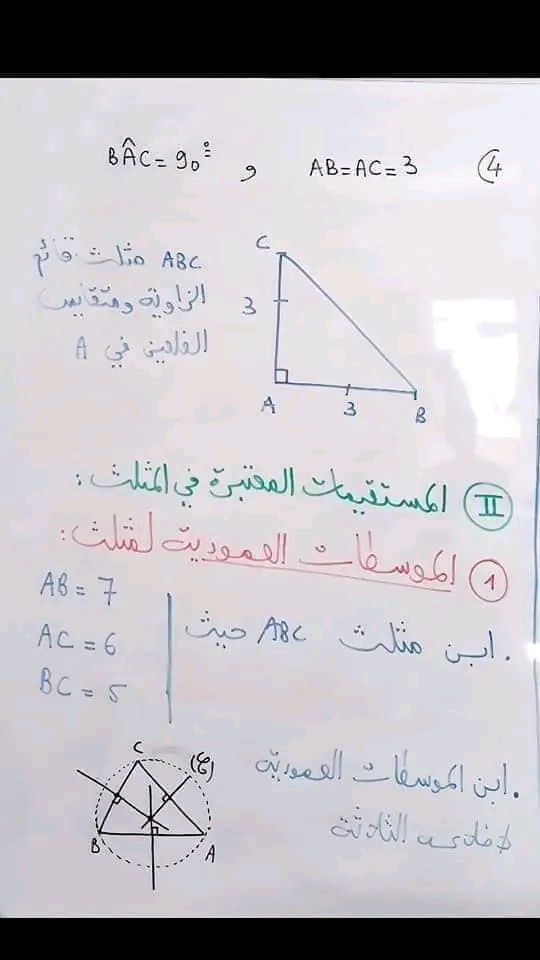 (4 AB=AC=3 و BÂC=90°
C
ABC مثلث قائم
الزاوية ومتقايس
الضلعين في A
3
A
3
B
II المستقيمات المعتبرة في المثلث:
1 الموسطات العمودية لمثلث:
. ابن مثلث ABC حيث
AB = 7
AC = 6
BC = 5
. ابن الموسطات العمودية
لأضلاعه الثلاثة
C
B
A